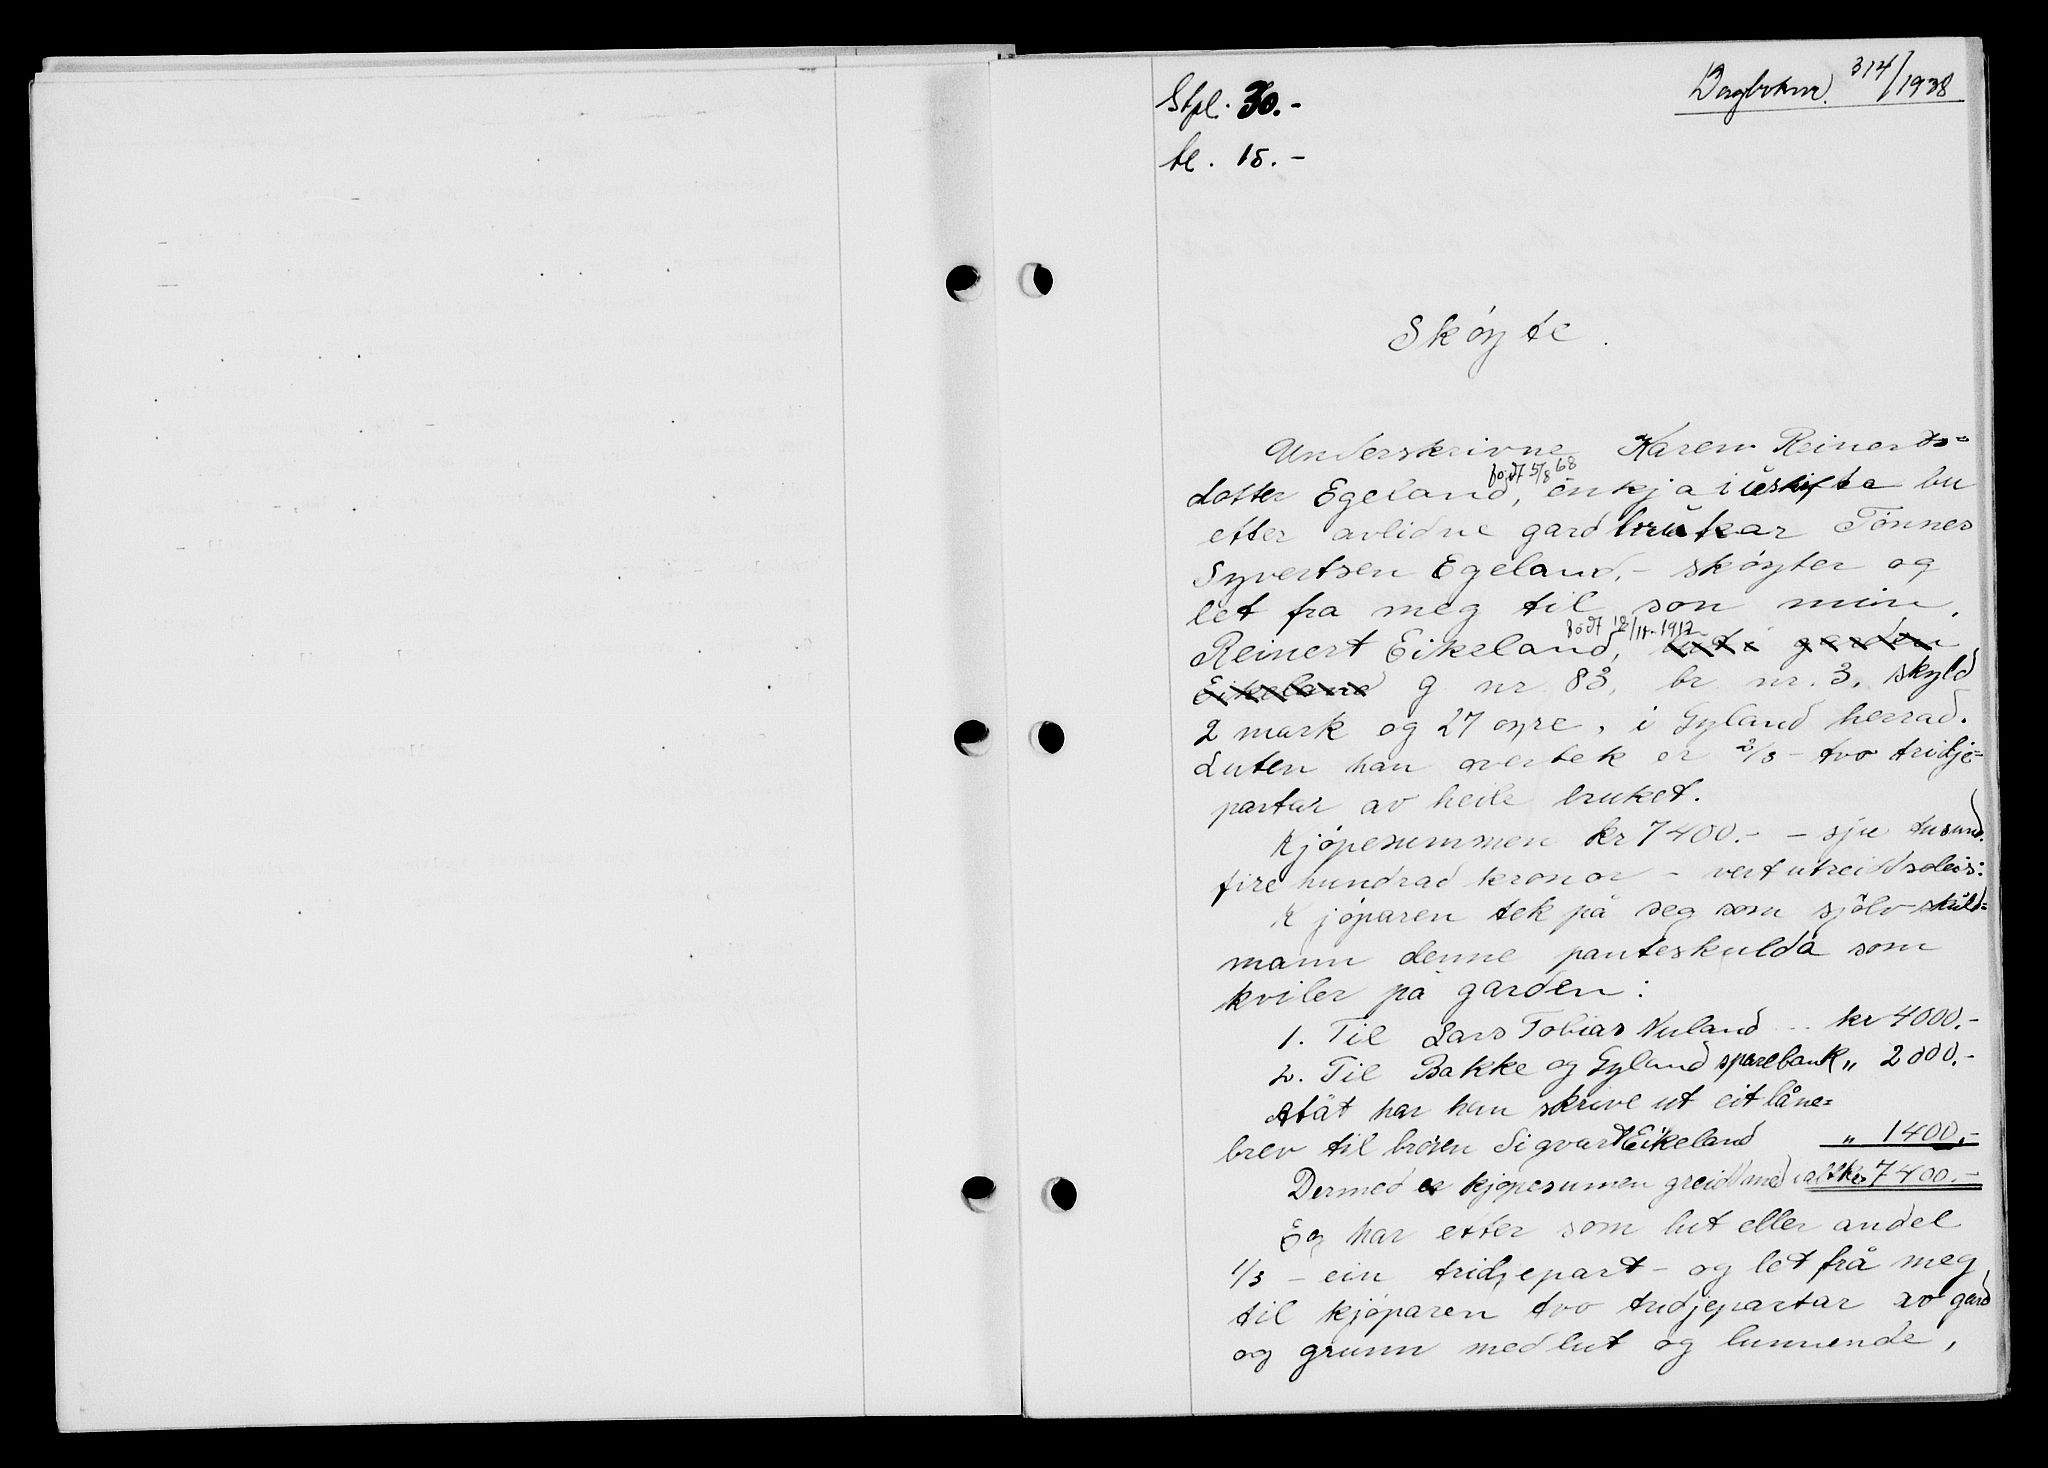 Dagboknr. 314/1938
Stpl. 30.-
tl. 15.-
Skøyte.
Underskrivne Karen Reinerds=
dotter Egeland, født 5/8 68 enkja i uskifta bu
etter avlidne gardbrukar Tønnes
Syvertsen Egeland, - skøyter og
let fra meg til son min,
Reinert Eikeland, født 12/11-1912 garden
Eikeland g. nr. 83, br. nr. 3, skyld
2 mark og 27 øyre, i Gyland herrad.
Luten han overtek er 2/3 - tvo tridje=
partar av heile bruket.
Kjøpesummen kr 7400.- - sju tusund
fire hundrad kronor - vert utreidd soleis:
Kjøparen tek på seg som sjølv-skuld=
mann denne panteskulda som
kviler på garden:
1. Til Lars Tobias Nuland .. kr 4000.-
2. Til Bakke og Gyland sparebank „ 2000.-
Attåt har han skrive ut eit låne=
brev til broren Sigvart Eikeland „ 1400.-
Dermed er kjøpesumen greidd med ialt kr 7400.-
Eg har etter som lut eller andel
1/3 - ein tridjepart - og let frå meg
til kjøparen tvo tridjepartar av gard
og grunn med lut og lunnende,